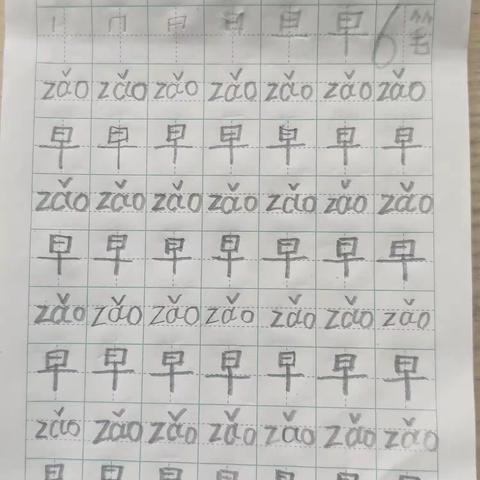 丨 冂 日 日 旦 早 6笔
zǎo zǎo zǎo zǎo zǎo zǎo zǎo
早 早 早 早 早 早 早
zǎo zǎo zǎo zǎo zǎo zǎo zǎo
早 早 早 早 早 早 早
zǎo zǎo zǎo zǎo zǎo zǎo zǎo
早 早 早 早 早 早 早
zǎo zǎo zǎo zǎo zǎo zǎo zǎo